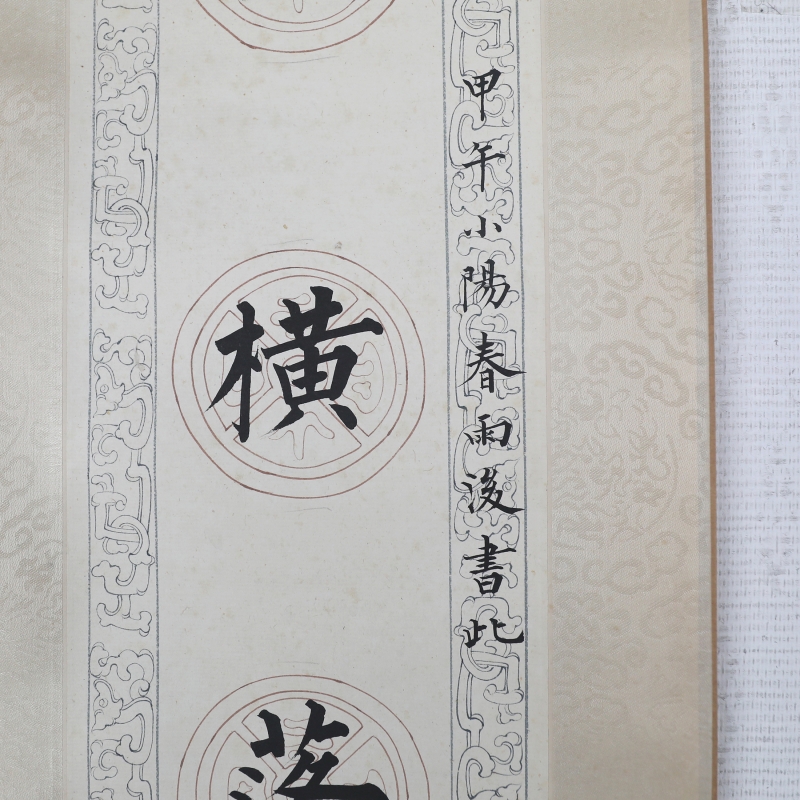 甲午小陽春雨後書此
橫落